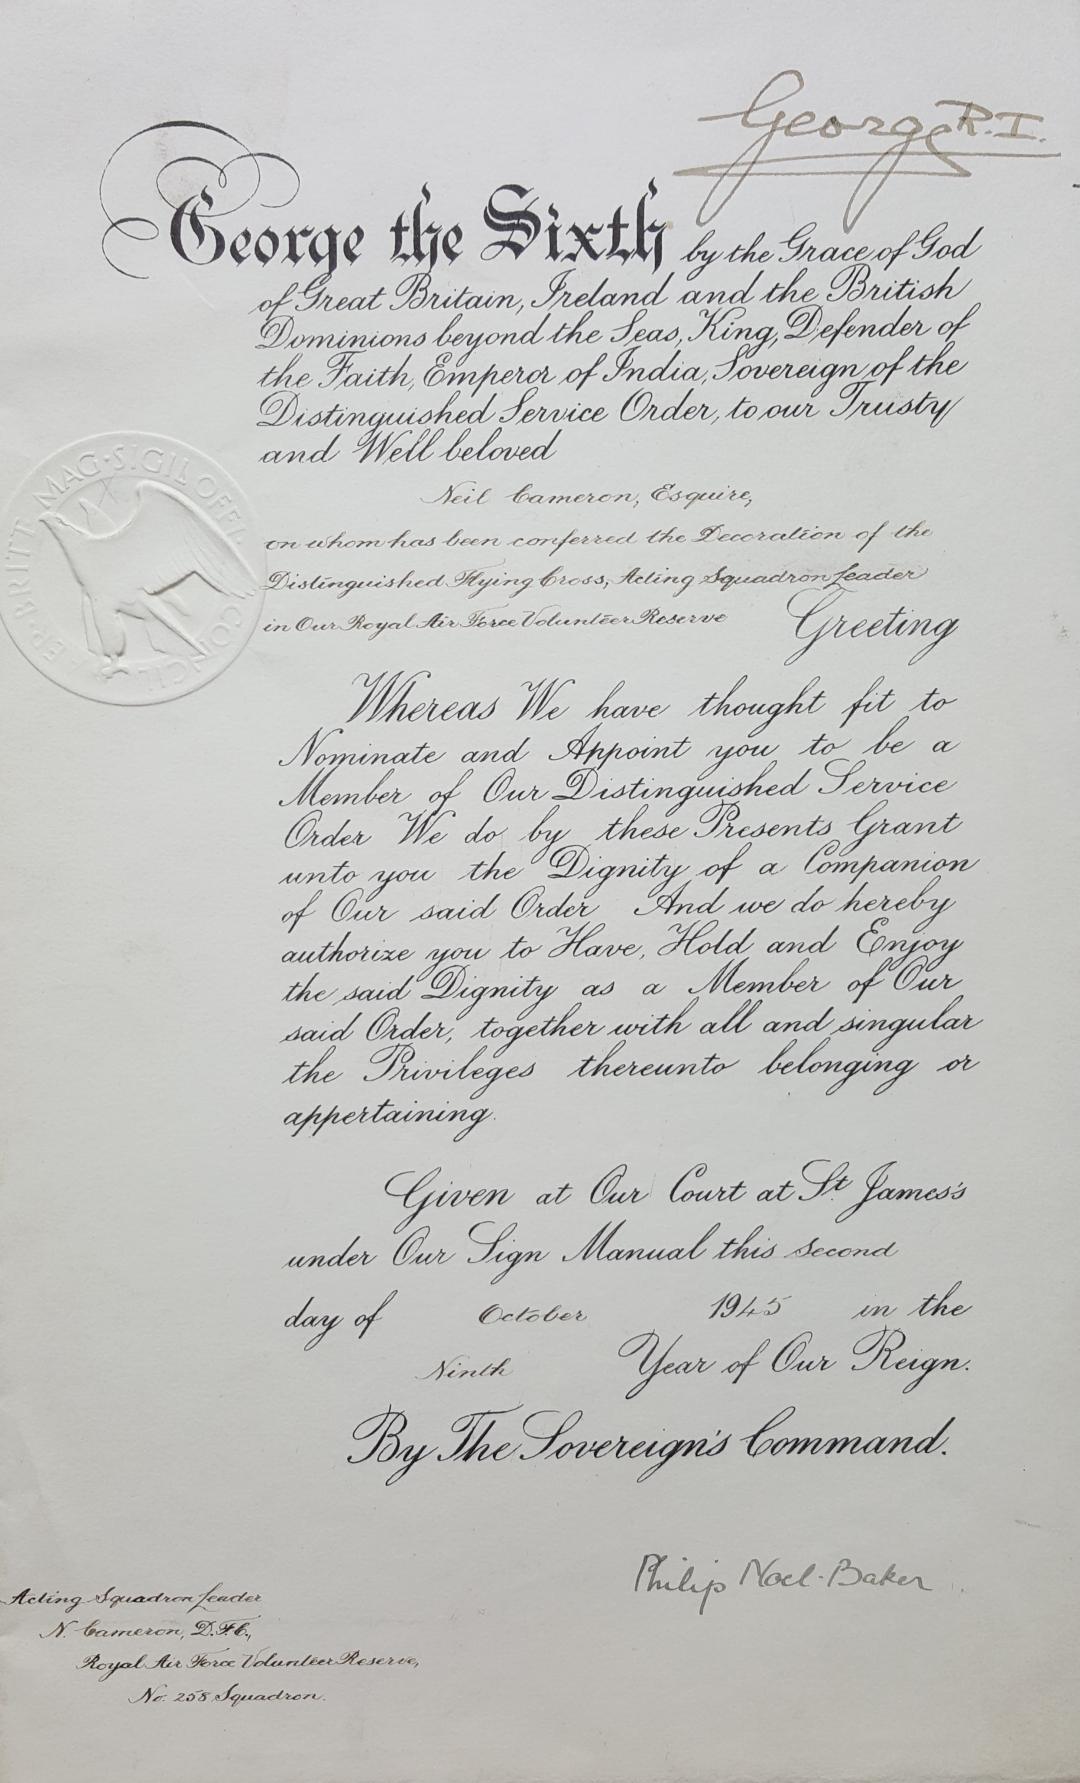 George R.I.
George the Sixth by the Grace of God
of Great Britain, Ireland and the British
Dominions beyond the Seas, King, Defender of
the Faith, Emperor of India, Sovereign of the
Distinguished Service Order, to our Trusty
and Well beloved
Neil Cameron, Esquire,
on whom has been conferred the Decoration of the
Distinguished Flying Cross, Acting Squadron Leader
in Our Royal Air Force Volunteer Reserve Greeting
MAG·SIGIL OFFI
CONCIL
BRITT
Whereas We have thought fit to
Nominate and Appoint you to be a
Member of Our Distinguished Service
Order We do by these Presents Grant
unto you the Dignity of a Companion
of Our said Order And we do hereby
authorize you to Have, Hold and Enjoy
the said Dignity as a Member of Our
said Order, together with all and singular
the Privileges thereunto belonging or
appertaining.
Given at Our Court at St. James's
under Our Sign Manual this second
day of October 1945 in the
Ninth Year of Our Reign.
By The Sovereign's Command.
Philip Noel-Baker
Acting Squadron Leader
N. Cameron, D.F.C.,
Royal Air Force Volunteer Reserve,
No. 258 Squadron.